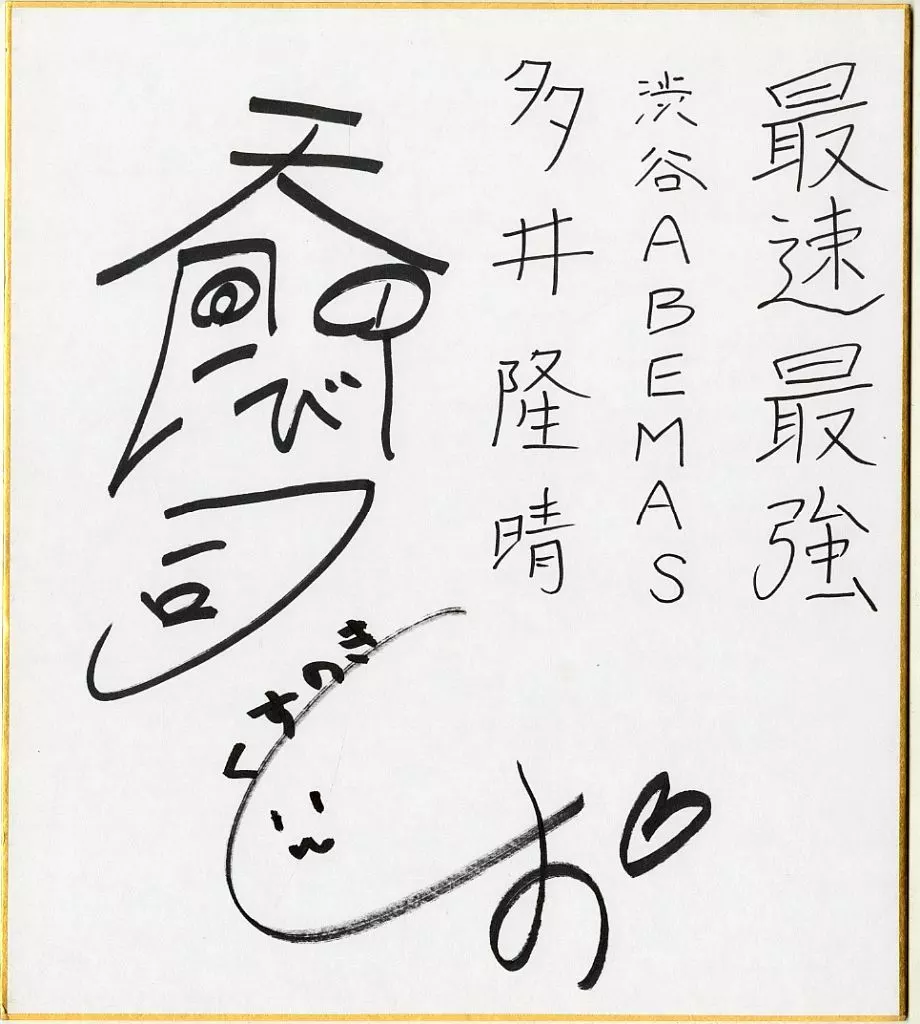 最速最強
渋谷ABEMAS
多井隆晴
天開司
くすのき
しお